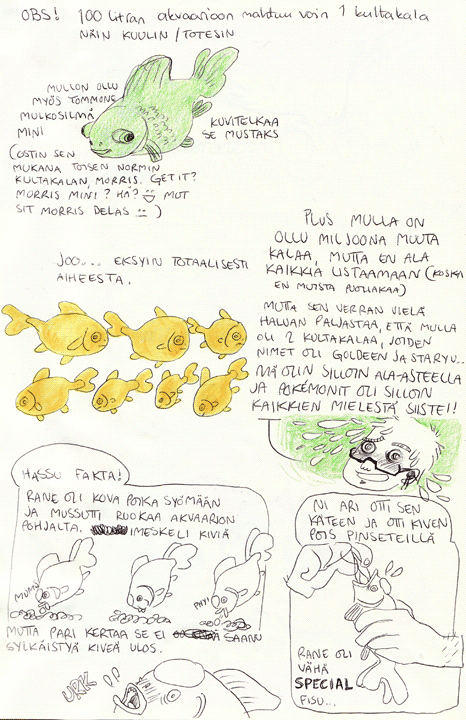 OBS! 100 litran akvaarioon mahtuu vain 1 kultakala
NÄIN KUULIN / TOTESIN
MULLON OLLU
MYÖS TOMMONE
MULKOSILMÄ
MINI
(OSTIN SEN
MUKANA TOISEN NORMIN
KULTAKALAN, MORRIS. GET IT?
MORRIS MINI? HÄ? :D MUT
SIT MORRIS DELAS :| )
KUVITELKAA
SE MUSTAKS
JOO... EKSYIN TOTAALISESTI
AIHEESTA.
PLUS MULLA ON
OLLU MILJOONA MUUTA
KALAA, MUTTA EN ALA
KAIKKIA LISTAAMAAN (KOSKA
EN MUISTA PUOLIAKAA)
MUTTA SEN VERRAN VIELÄ
HALUAN PALJASTAA, ETTÄ MULLA
OLI 2 KULTAKALAA, JOIDEN
NIMET OLI GOLDEEN JA STARYU..
MÄ OLIN SILLOIN ALA-ASTEELLA
JA POKÉMONIT OLI SILLOIN
KAIKKIEN MIELESTÄ SIISTEI!
HASSU FAKTA!
RANE OLI KOVA POIKA SYÖMÄÄN
JA MUSSUTTI RUOKAA AKVAARION
POHJALTA. IMESKELI KIVIÄ
MUMS
PTY!
MUTTA PARI KERTAA SE EI SAANU
SYLKÄISTYÄ KIVEÄ ULOS.
URK
NI ARI OTTI SEN
KÄTEEN JA OTTI KIVEN
POIS PINSETEILLÄ
RANE OLI
VÄHÄ
SPECIAL
FISU...